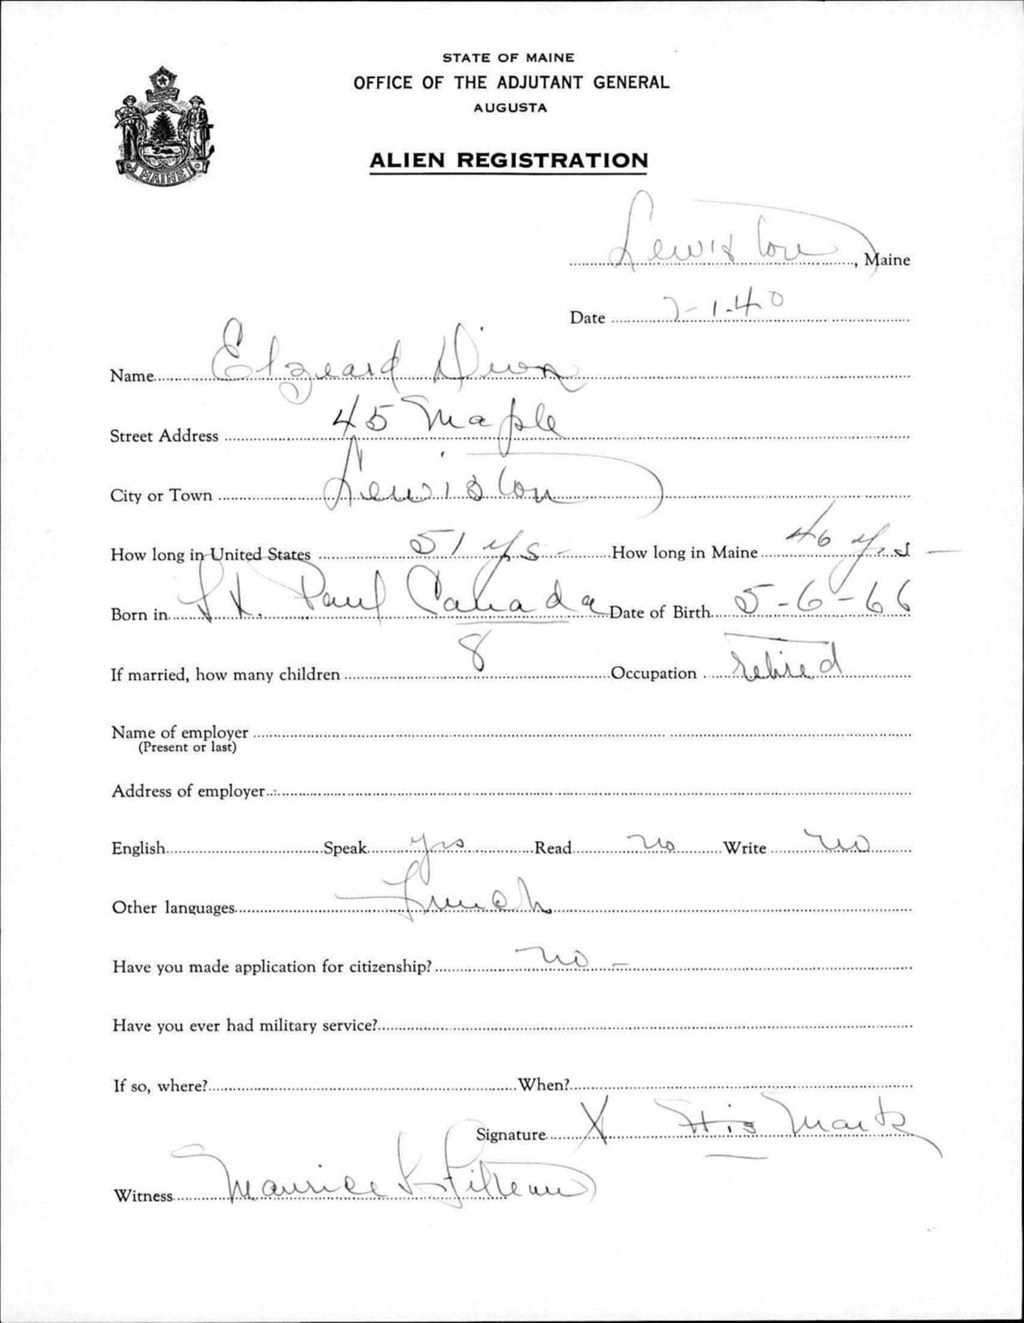 STATE OF MAINE
OFFICE OF THE ADJUTANT GENERAL
AUGUSTA
MAINE
ALIEN REGISTRATION
Lewiston, Maine
Date 7-1-40
Name Elzeard Dion
Street Address 45 Maple
City or Town Lewiston
How long in United States 51 yrs - How long in Maine 46 yrs -
Born in St. Paul Canada Date of Birth 5-6-66
If married, how many children 8 Occupation retired
Name of employer
(Present or last)
Address of employer
English Speak yes Read no Write no
Other languages French
Have you made application for citizenship? no -
Have you ever had military service?
If so, where? When?
Signature X His Mark
Witness Maurice